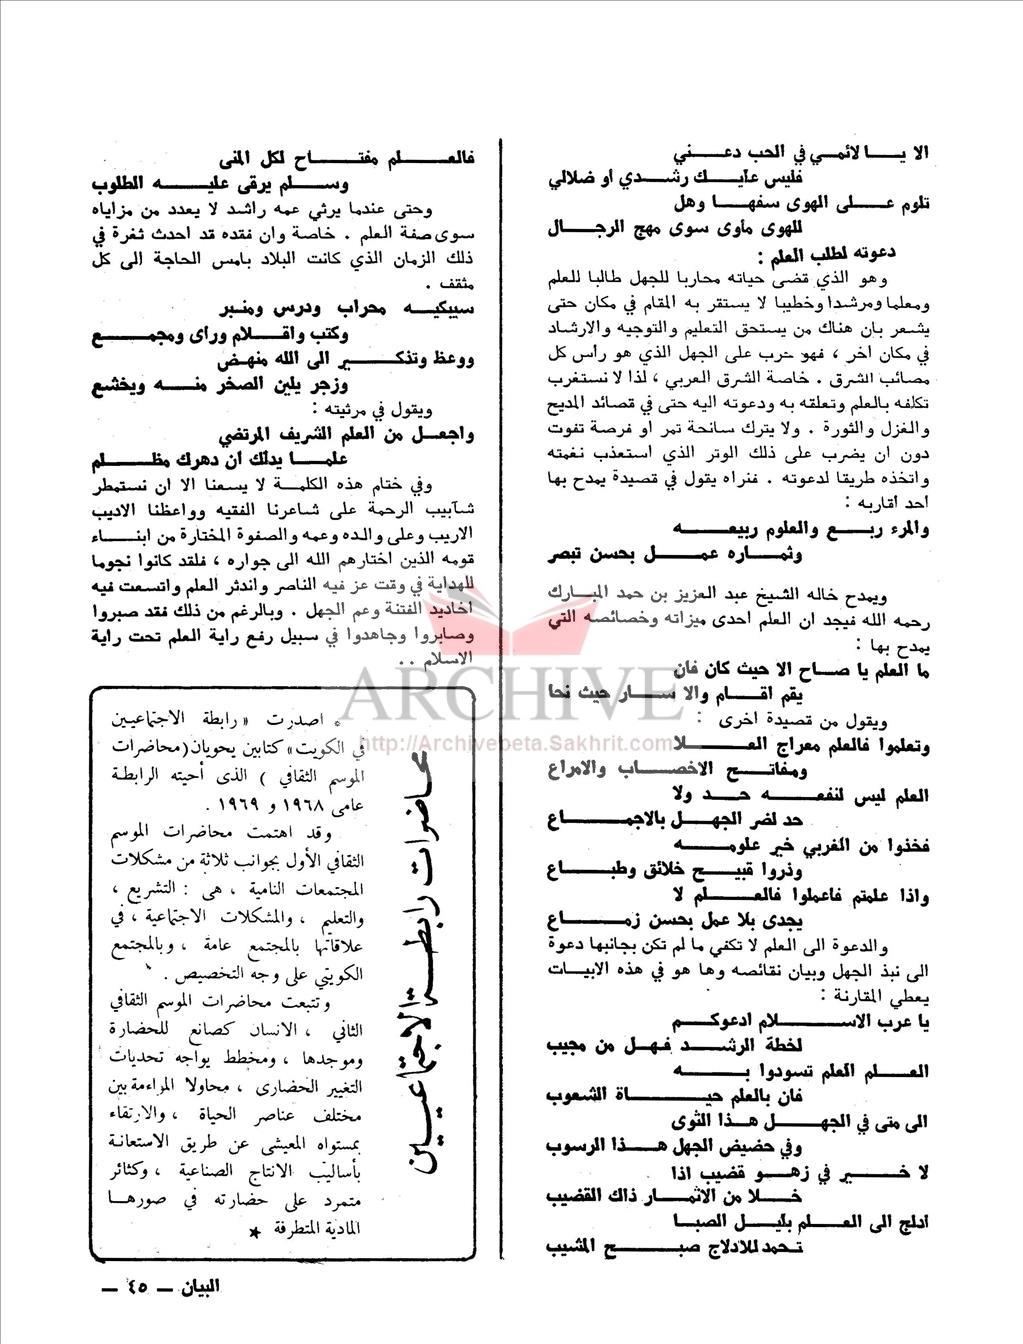 الا يا لائمي في الحب دعني
فليس عليك رشدي أو ضلالي
تلوم على الهوى سفها وهل
للهوى مأوى سوى مهج الرجال
دعوته لطلب العلم :
وهو الذي قضى حياته محاربا للجهل طالبا للعلم
ومعلما ومرشدا وخطيبا لا يستقر به المقام في مكان حتى
يشعر بان هناك من يستحق التعليم والتوجيه والارشاد
في مكان آخر ، فهو حرب على الجهل الذي هو رأس كل
مصائب الشرق . خاصة الشرق العربي ، لذا لا نستغرب
تكلفه بالعلم وتعلقه به ودعوته اليه حتى في قصائد المديح
والغزل والثورة . ولا يترك سانحة تمر او فرصة تفوت
دون ان يضرب على ذلك الوتر الذي استعذب نغمته
واتخذه طريقا لدعوته . فنراه يقول في قصيدة يمدح بها
احد اقاربه :
والمرء ربع والعلوم ربيعه
وثماره عمل بحسن تبصر
ويمدح خاله الشيخ عبد العزيز بن حمد المبارك
رحمه الله فيجد ان العلم احدى ميزاته وخصائصه التي
يمدح بها :
ما العلم يا صاح الا حيث كان فان
يقم اقام والا سار حيث نحا
ويقول من قصيدة اخرى :
وتعلموا فالعلم معراج العلا
ومفاتح الاخصاب والامراع
العلم ليس لنفعه حد ولا
حد لضر الجهل بالاجماع
فخذوا من الغربي خير علومه
وذروا قبيح خلائق وطباع
واذا علمتم فاعملوا فالعلم لا
يجدى بلا عمل بحسن زماع
والدعوة الى العلم لا تكفي ما لم تكن بجانبها دعوة
الى نبذ الجهل وبيان نقائصه وها هو في هذه الابيات
يعطي المقارنة :
يا عرب الاسلام ادعوكم
لخطة الرشد فهل من مجيب
العلم العلم تسودوا به
فان بالعلم حياة الشعوب
الى متى في الجهل هذا الثوى
وفي حضيض الجهل هذا الرسوب
لا خير في زهو قضيب اذا
خلا من الاثمار ذاك القضيب
ادلج الى العلم بليل الصبا
تحمد للادلاج صبح المشيب
فالعلم مفتاح لكل المنى
وسلم يرقى عليه الطلوب
وحتى عندما يرثي عمه راشد لا يعدد من مزاياه
سوى صفة العلم . خاصة وان فقده قد احدث ثغرة في
ذلك الزمان الذي كانت البلاد بامس الحاجة الى كل
مثقف .
سيبكيه محراب ودرس ومنبر
وكتب واقلام وراى ومجمع
ووعظ وتذكير الى الله منهض
وزجر يلين الصخر منه ويخشع
ويقول في مرثيته :
واجعل من العلم الشريف المرتضي
علما يدلك ان دهرك مظلم
وفي ختام هذه الكلمة لا يسعنا الا ان نستمطر
شآبيب الرحمة على شاعرنا الفقيه وواعظنا الاديب
الاريب وعلى والده وعمه والصفوة المختارة من ابناء
قومه الذين اختارهم الله الى جواره ، فلقد كانوا نجوما
للهداية في وقت عز فيه الناصر واندثر العلم واتسعت فيه
اخاديد الفتنة وعم الجهل . وبالرغم من ذلك فقد صبروا
وصابروا وجاهدوا في سبيل رفع راية العلم تحت راية
الاسلام ..
محاضرات رابطة الاجتماعيين
* اصدرت « رابطة الاجتماعيين
في الكويت » كتابين يحويان ( محاضرات
الموسم الثقافي ) الذى أحيته الرابطة
عامى ١٩٦٨ و ١٩٦٩ .
وقد اهتمت محاضرات الموسم
الثقافي الأول بجوانب ثلاثة من مشكلات
المجتمعات النامية ، هى : التشريع ،
والتعليم ، والمشكلات الاجتماعية ، في
علاقاتها بالمجتمع عامة ، وبالمجتمع
الكويتي على وجه التخصيص .
وتتبعت محاضرات الموسم الثقافي
الثاني ، الانسان كصانع للحضارة
وموجدها ، ومخطط يواجه تحديات
التغيير الحضارى ، محاولا المواءمة بين
مختلف عناصر الحياة ، والارتقاء
بمستواه المعيشى عن طريق الاستعانة
بأساليب الانتاج الصناعية ، وكثائر
متمرد على حضارته في صورها
المادية المتطرفة *
ARCHIVE
http://Archivebeta.Sakhrit.com
البيان — ٤٥ —